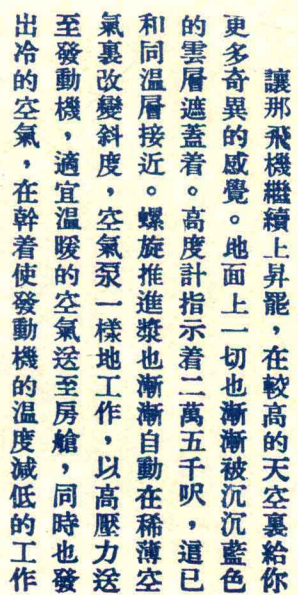 讓那飛機繼續上昇罷，在較高的天空裏給你
更多奇異的感覺。地面上一切也漸漸被沉沉藍色
的雲層遮蓋着。高度計指示着二萬五千呎，這已
和同温層接近。螺旋推進槳也漸漸自動在稀薄空
氣裏改變斜度，空氣泵一樣地工作，以高壓力送
至發動機，適宜温暖的空氣送至房艙，同時也發
出冷的空氣，在幹着使發動機的温度減低的工作